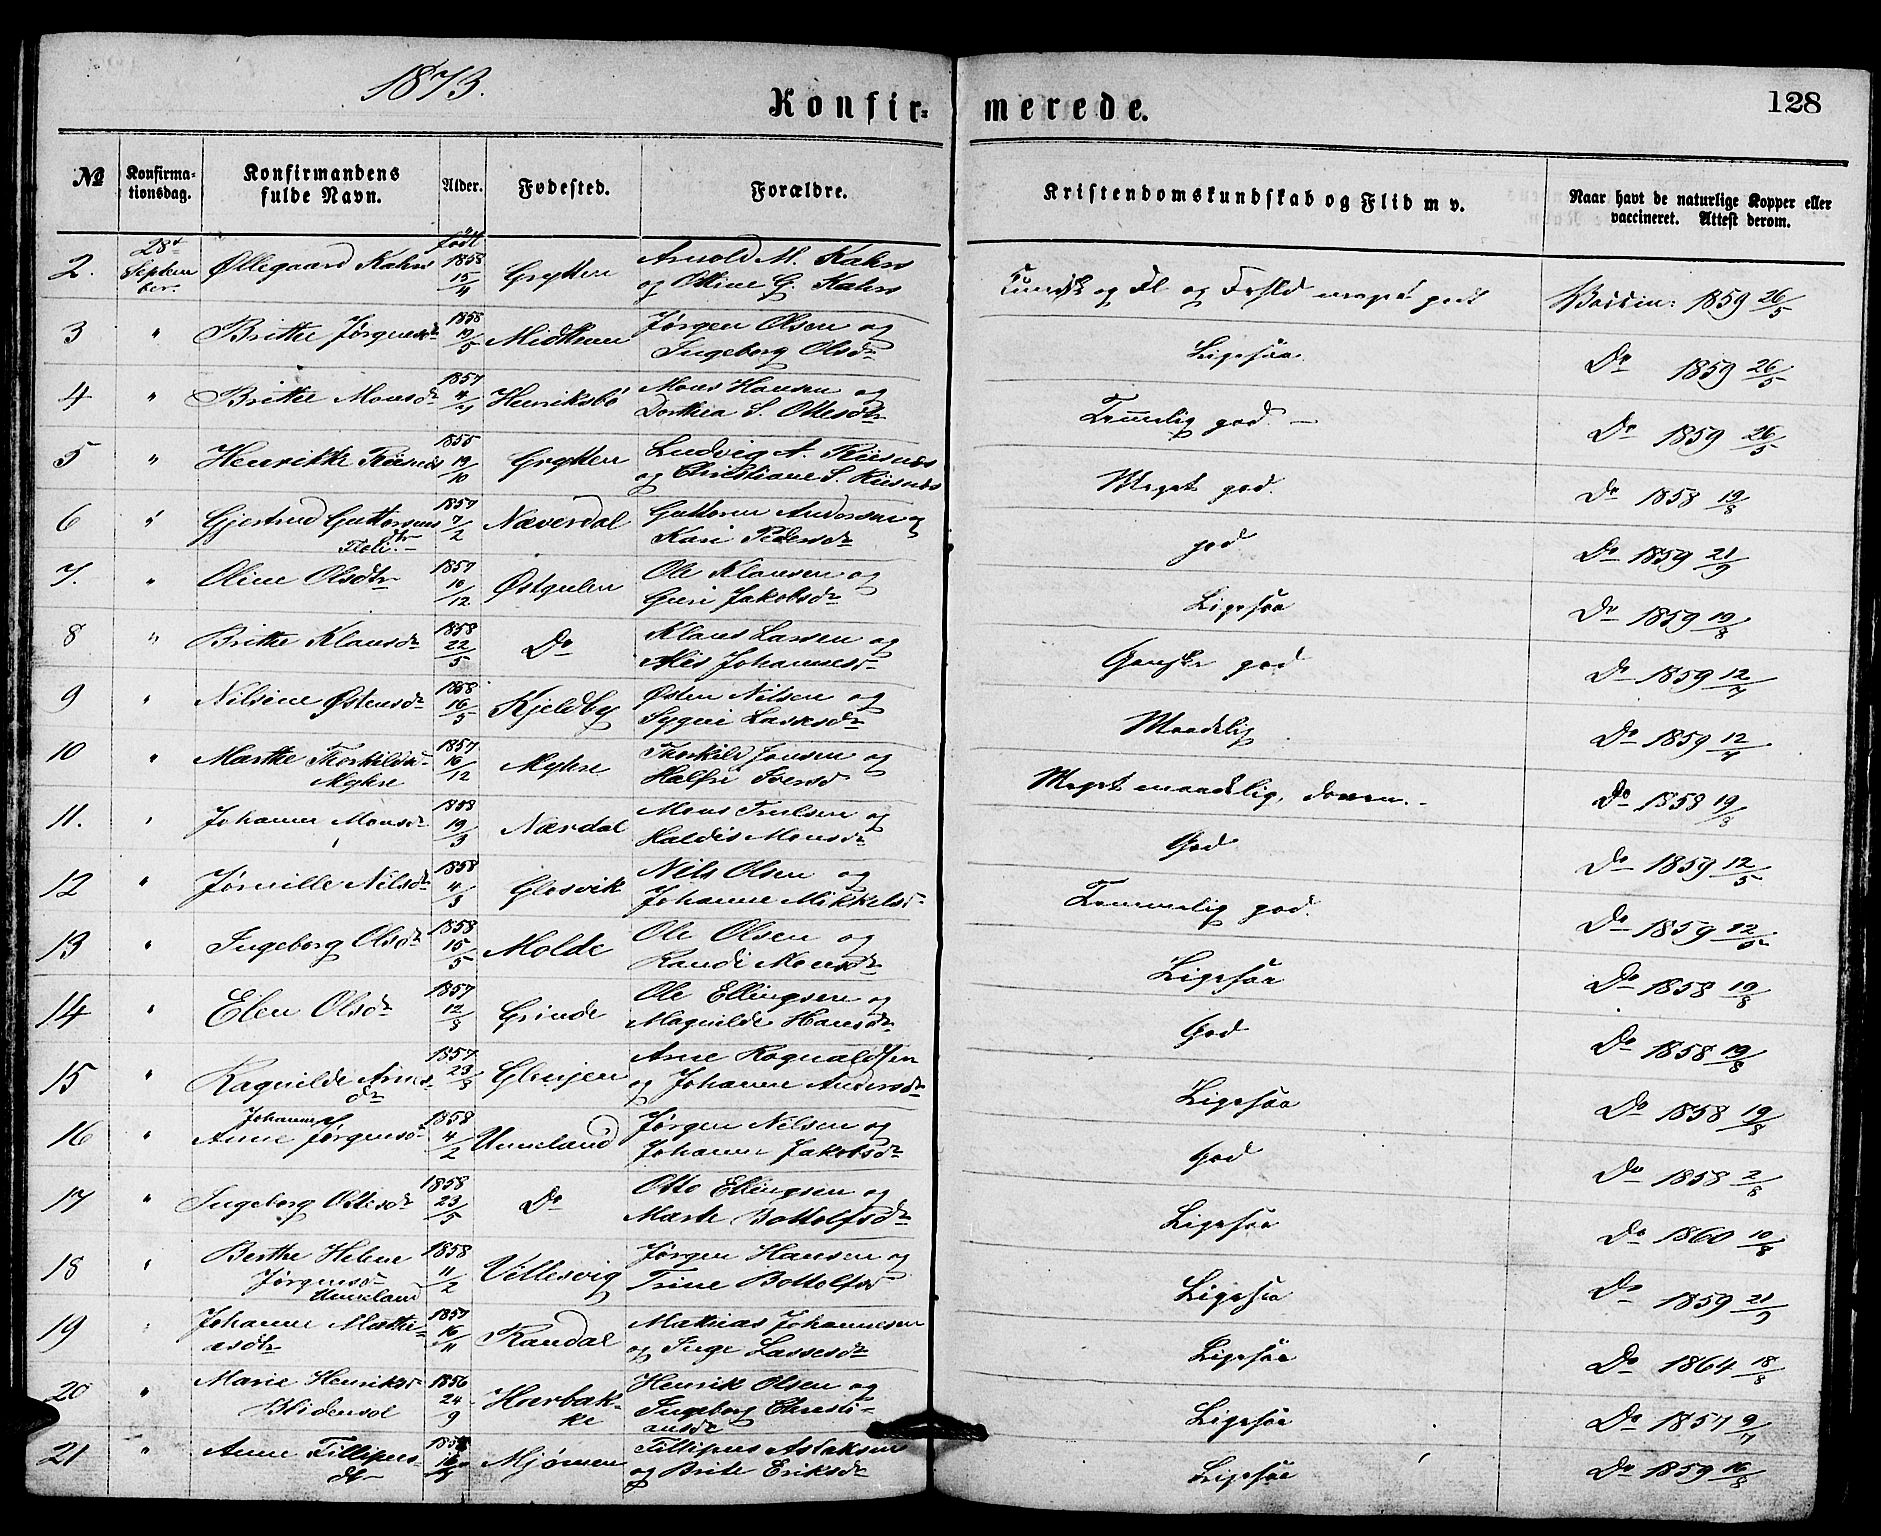 1873.
Konfir=
merede.
128
No
Konfirma-
tionsdag.
Konfirmandens
fulde Navn.
Alder.
Fødested.
Forældre.
Kristendomskundskab og Flid m v.
Naar havt de naturlige Kopper eller
vaccineret. Attest derom.
2. 28de Septem ber. Øllegaard Kahrs født 1858 15/11 Grytten Arnold M. Kahrs
og Oline G. Kahrs
Kundsk og Fl og Forhld meget godt Vaccin: 1859 26/5
3 " Brithe Jørgensdr 1858 19/5 Midttun Jørgen Olsen og
Ingeborg Olsdr
Ligesaa Do 1859 26/5
4 " Brithe Monsdr 1857 Henriksbø Mons Hansen og
Dorthea S. Ottesdtr
Temmelig god. - Do 1859 26/5
5 " Henrikke Riisnæs 1855 19/10 Grytten Ludvig A. Riisnæs
og Christiane S. Riisnæs
Meget god. Do 1858 19/8
6 " Gjertrud Guttorms
dtr 1857 7/2 Næverdal Guttorm Andersen og
Kari Pedersdr
god Do 1859 21/9
7. " Oline Olsdtr 1857 16/12 Østgulen Ole Klausen og
Guri Jakobsdr
Ligesaa Do 1859 19/8
8 " Brithe Klausdr 1858 22/5 Do Klaus Larsen og
Alis Johannesdr
Ganske god Do 1859 12/7
9 " Nilsine Østensdr 1858 16/5 Kjeldby Østen Nilsen og
Sygni Lassesdr
Maadelig Do 1859 12/7
10 " Marthe Thorkildsdr
Myhre 1857 16/12 Myhre Thorkild Jonsen og
Halfri Iversd
Meget maadelig, doven. - Do 1858 19/8
11. " Johanne Monsdr 1858 19/3 Nærdal Mons Trulsen og
Haldis Monsdr
God Do 1859 12/5
12 " Jørnille Nilsdr 1858 4/3 Glosvik Nils Olsen og
Johanne Mikkelsdr
Temmelig god. Do 1859 12/5
13 " Ingeborg Olsdr 1858 15/5 Molde Ole Olsen og
Randi Monsdr
Ligesaa Do 1858 19/8
14 " Elen Olsdr 1857 12/8 Grinde Ole Ellingsen og
Magnilde Hansdr
God Do 1858 19/8
15 " Ragnilde Arnes-
dr 1857 23/8 Glenjen Arne Rognaldsen
og Johanne Andersdr
Ligesaa Do 1858 19/8
16 " Johanne
Anne Jørgensdr 1858 4/2 Unneland Jørgen Nilsen og
Johanne Jakobsdr
God Do 1858 2/8
17 " Ingeborg Ottesdr 1858 23/5 Do Otto Ellingsen og
Marte Bottolfsdr
Ligesaa Do 1860 10/8
18 " Berthe Helene
Jørgensdr
Unneland 1858 11/2 Villesvig Jørgen Hansen og
Trine Bottolfsd
Ligesaa Do 1859 21/9
19 " Johanne Mathi-
asdtr 1857 16/11 Randal Mathias Johannesen
og Inge Lassesdr
Ligesaa Do 1864 18/8
20 " Marie Henriksdr
Blidensol 1856 24/9 Hserbak-
ke Henrik Olsen og
Ingeborg Christi-
ansdr
Ligesaa Do 1857 9/7
21 " Anne Fillipus-
dtr Mjømen Fillipus Aslaksen
og Brite Eriksdr
Ligesaa Do 1859 16/8